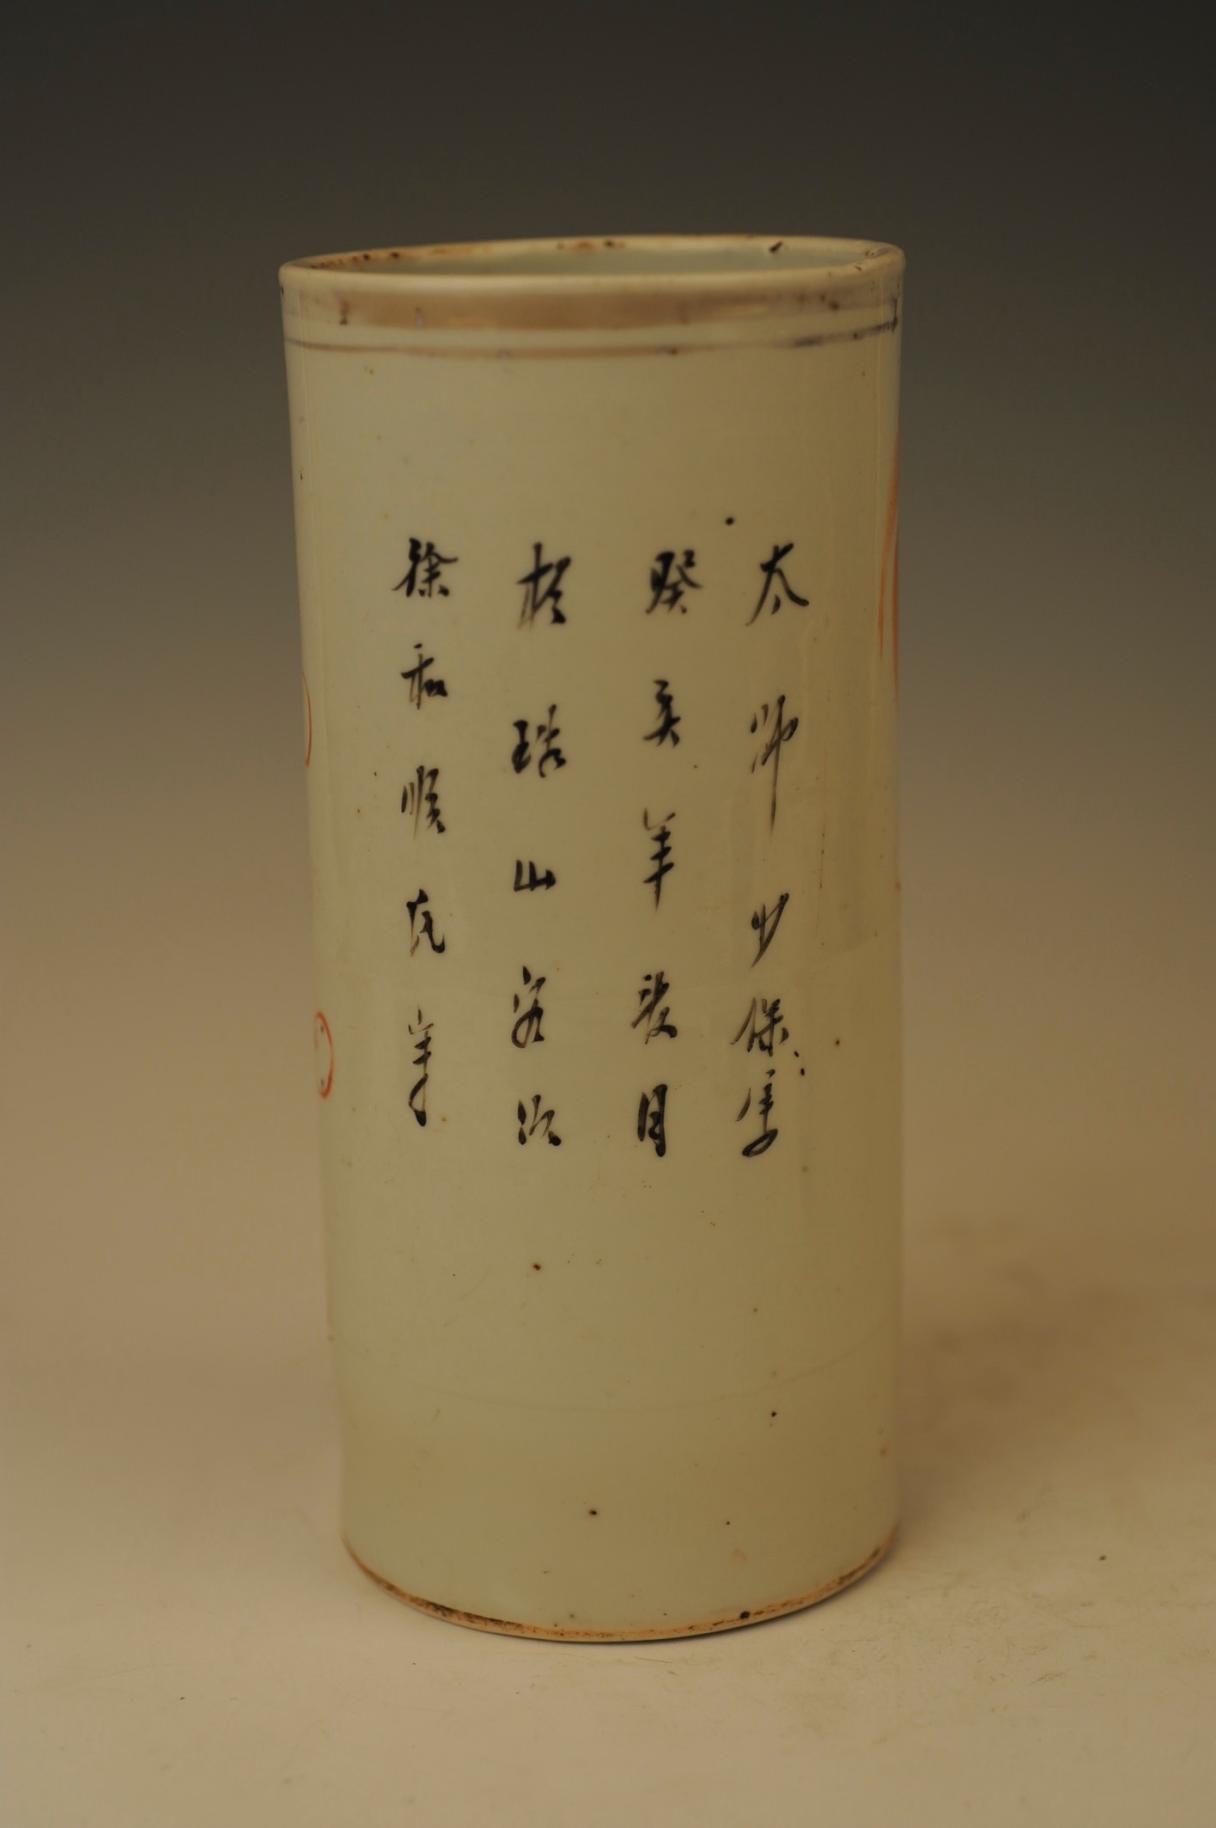 太师少保
癸亥年设月
於珠山客次
徐和顺